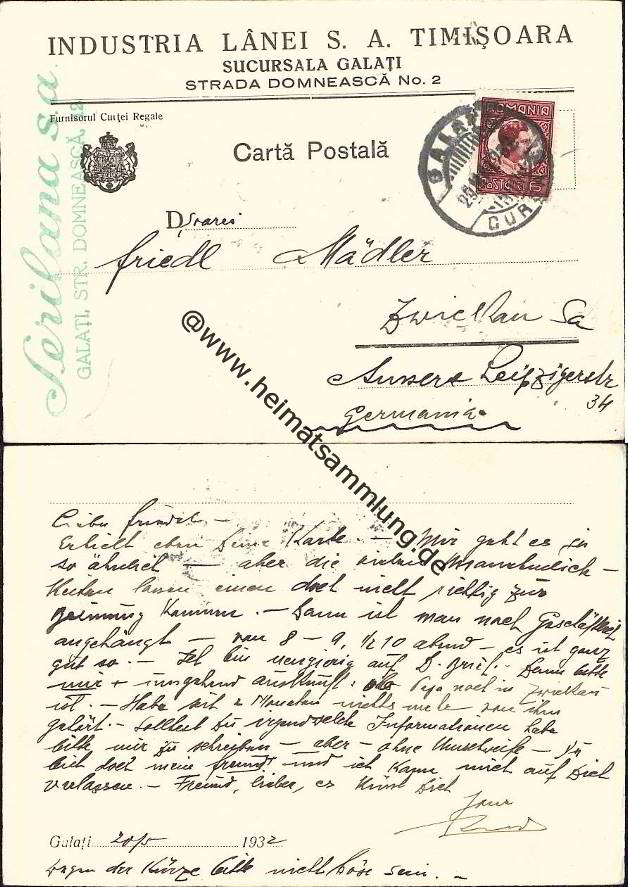 INDUSTRIA LÂNEI S. A. TIMIȘOARA
SUCURSALA GALAȚI
STRADA DOMNEASCĂ No. 2
Furnisorul Curței Regale
Serilana s.a.
GALAȚI, STR. DOMNEASCĂ, 2
Cartă Postală
ROMANIA
GALAȚI
CUR
D
Friedl Mädler
Zwickau Sa
Aussere Leipzigerstr
34
Germania
@www.heimatsammlung.de
Erhielt eben Deine Karte. – Mir geht es ja
so ähnlich – aber die
lassen einen doch nicht richtig zur
kommen. – Dann ist man noch Geschäftlich
angehängt – von 8 – 9, 1/2 10 abend – es ist ganz
gut so. – Ich bin neugierig auf D. Brief. – Dann bitte
mir umgehend Auskunft: ob noch in Zwickau
ist. – Habe seit 2 Monaten nichts mehr von ihm
gehört. – Solltest Du irgendwelche Informationen habe
bitte mir zu schreiben – aber – ohne Umschweife – Du
bist doch mein Freund – und ich kann mich auf Dich
verlassen. – Freund, lieber, es küsst Dich
Galați 1932
Wegen der Kürze bitte nicht böse sein. –